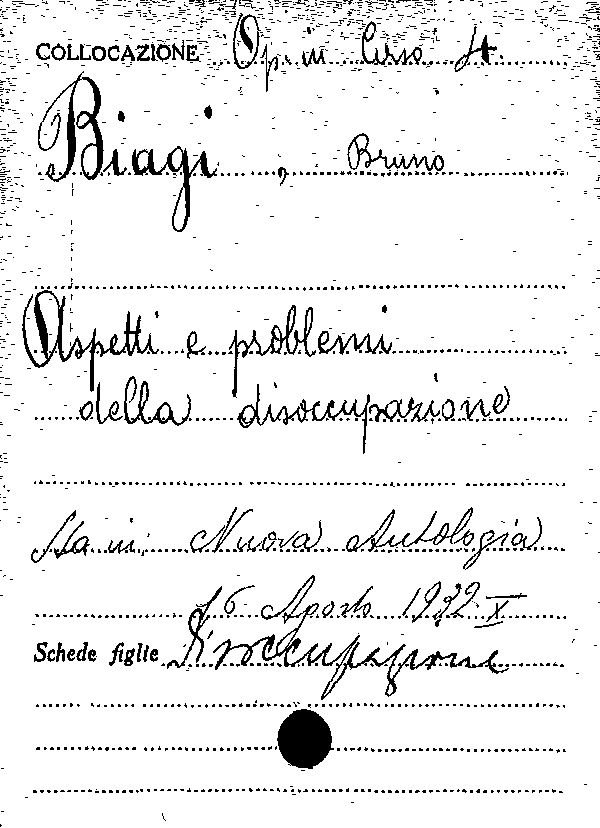 COLLOCAZIONE Op. in Corso 4
Biagi, Bruno
Aspetti e problemi
della disoccupazione
Sta in: Nuova Antologia
16 Agosto 1932.X
Schede figlie Disoccupazione